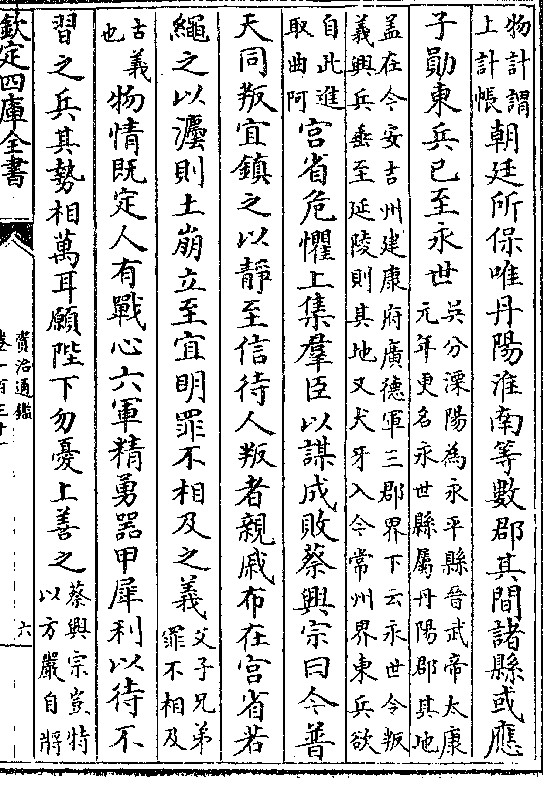 物計謂
上計帳
朝廷所保唯丹陽淮南等數郡其間諸縣或應
子勛東兵已至永世
吳分溧陽為永平縣晉武帝太康
元年更名永世縣屬丹陽郡其地
蓋在今安吉州建康府廣德軍三郡界下云永世令叛
義興兵垂至延陵則其地又犬牙入今常州界東兵欲
自此進
取曲阿
宮省危懼上集羣臣以謀成敗蔡興宗曰今普
天同叛宜鎮之以靜至信待人叛者親戚布在宮省若
繩之以灋則土崩立至宜明罪不相及之義
父子兄弟
罪不相及
古義
也
物情既定人有戰心六軍精勇器甲犀利以待不
習之兵其勢相萬耳願陛下勿憂上善之
蔡興宗豈特
以方嚴自將
欽定四庫全書
資治通鑑
卷一百三十一
六